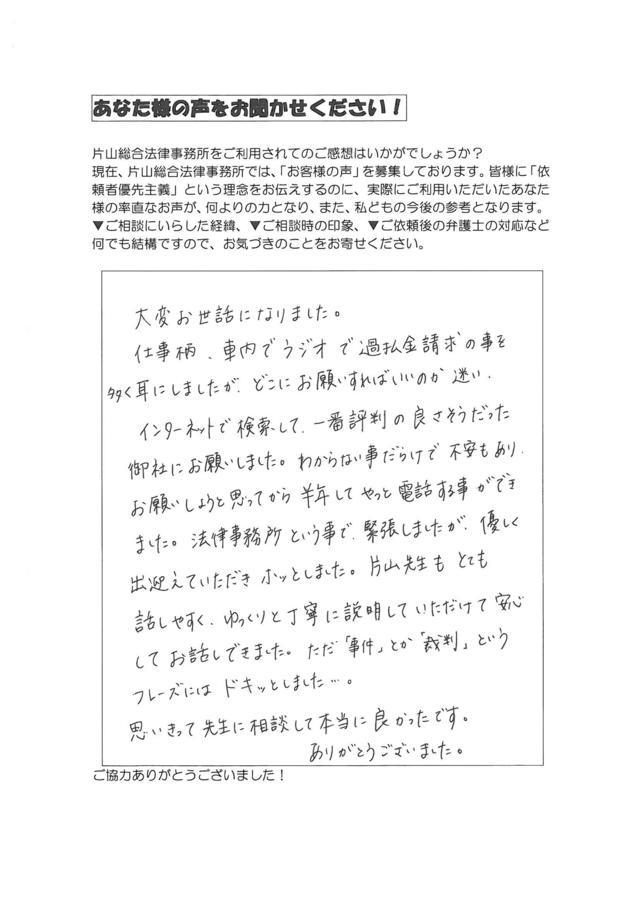 あなた様の声をお聞かせください！
片山総合法律事務所をご利用されてのご感想はいかがでしょうか？
現在、片山総合法律事務所では、「お客様の声」を募集しております。皆様に「依
頼者優先主義」という理念をお伝えするのに、実際にご利用いただいたあなた
様の率直なお声が、何よりの力となり、また、私どもの今後の参考となります。
▼ご相談にいらした経緯、▼ご相談時の印象、▼ご依頼後の弁護士の対応など
何でも結構ですので、お気づきのことをお寄せください。
大変お世話になりました。
仕事柄、車内でラジオで過払金請求の事を
多く耳にしましたが、どこにお願いすればいいのか迷い、
インターネットで検索して、一番評判の良さそうだった
御社にお願いしました。わからない事だらけで不安もあり、
お願いしようと思ってから半年してやっと電話する事ができ
ました。法律事務所という事で、緊張しましたが、優しく
出迎えていただきホッとしました。片山先生もとても
話しやすく、ゆっくりと丁寧に説明していただけて安心
してお話しできました。ただ「事件」とか「裁判」という
フレーズにはドキッとしました…。
思いきって先生に相談して本当に良かったです。
ありがとうございました。
ご協力ありがとうございました！